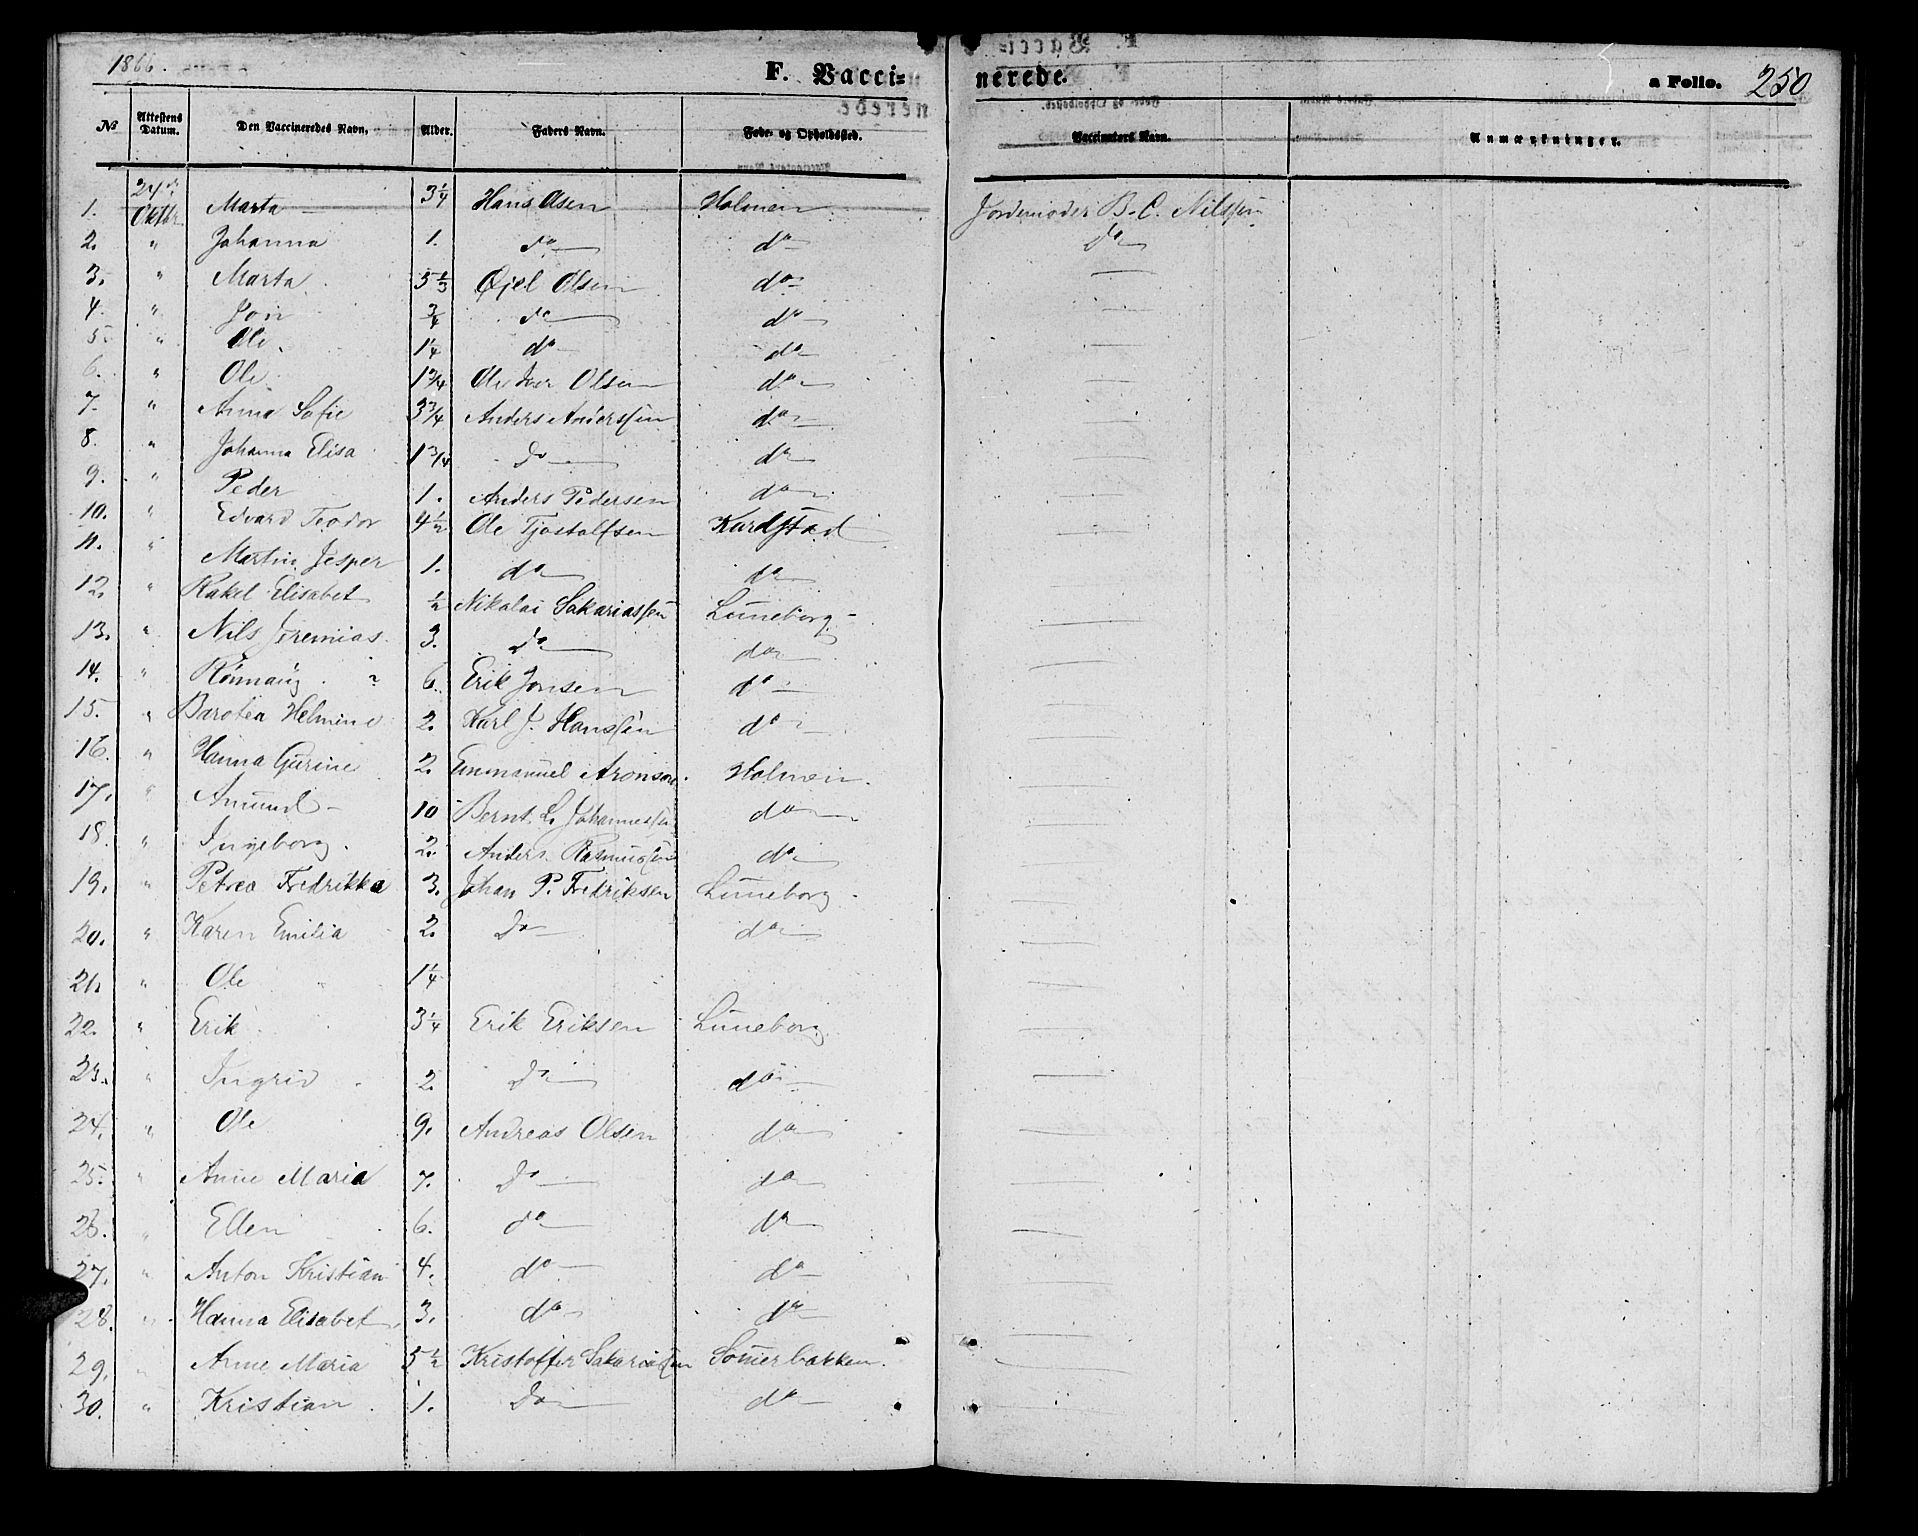 1866.
F. Vacci= nerede. a Folio. 250
№ Attestens Datum. Den Vaccineredes Navn. Alder. Faders Navn. Føde- og Opholdssted. Vaccinators Navn. Anmærkninger.
1. 24de Oktbr. Marta 3 1/4 Hans Olsen Holmen Jordemoder B. C. Nilssen
2. " Johanna 1. do do do
3. " Marta 5 1/3 Kjel Olsen do
4. " Jon 3/4 do do
5. " Ole 1 1/4 do do
6. " Ole 1 3/4 Ole Iver Olsen do
7. " Anna Sofie 3 3/4 Anders Anderssen do
8. " Johanna Elisa 1 3/4 do do
9. " Peder 1. Anders Pedersen do
10. " Edvard Teodor 4 1/2 Ole Tjostolfsen Kardstad
11. " Martin Jesper 1. do do
12. " Rakel Elisabet 1/2 Nikolai Sakariassen Luneborg
13. " Nils Jeremias 3. do do
14. " Rønnaug 6. Erik Jonsen do
15. " Barotea Helmine 2. Karl J. Hanssen do
16. " Hanna Gurine 2. Emmanuel Aronsen Holmen
17. " Amund 10 Bernt L. Johannessen do
18. " Ingeborg 2. Anders Rasmussen do
19. " Petrea Fredrikka 3. Johan P. Fredriksen Luneborg
20. " Karen Emilia 2. Do do
21. " Ole 1 1/4
22. " Erik 3 1/4 Erik Eriksen Luneborg
23. " Ingrid 2. Do do
24. " Ole 9. Andreas Olsen do
25. " Anne Maria 7. Do do
26. " Ellen 6. do do
27. " Anton Kristian 4. do do
28. " Hanna Elisabet 3. do do
29. " Anne Maria 5 1/2 Kristoffer Sakariassen Somerbakken
30. " Kristian 1. Do do